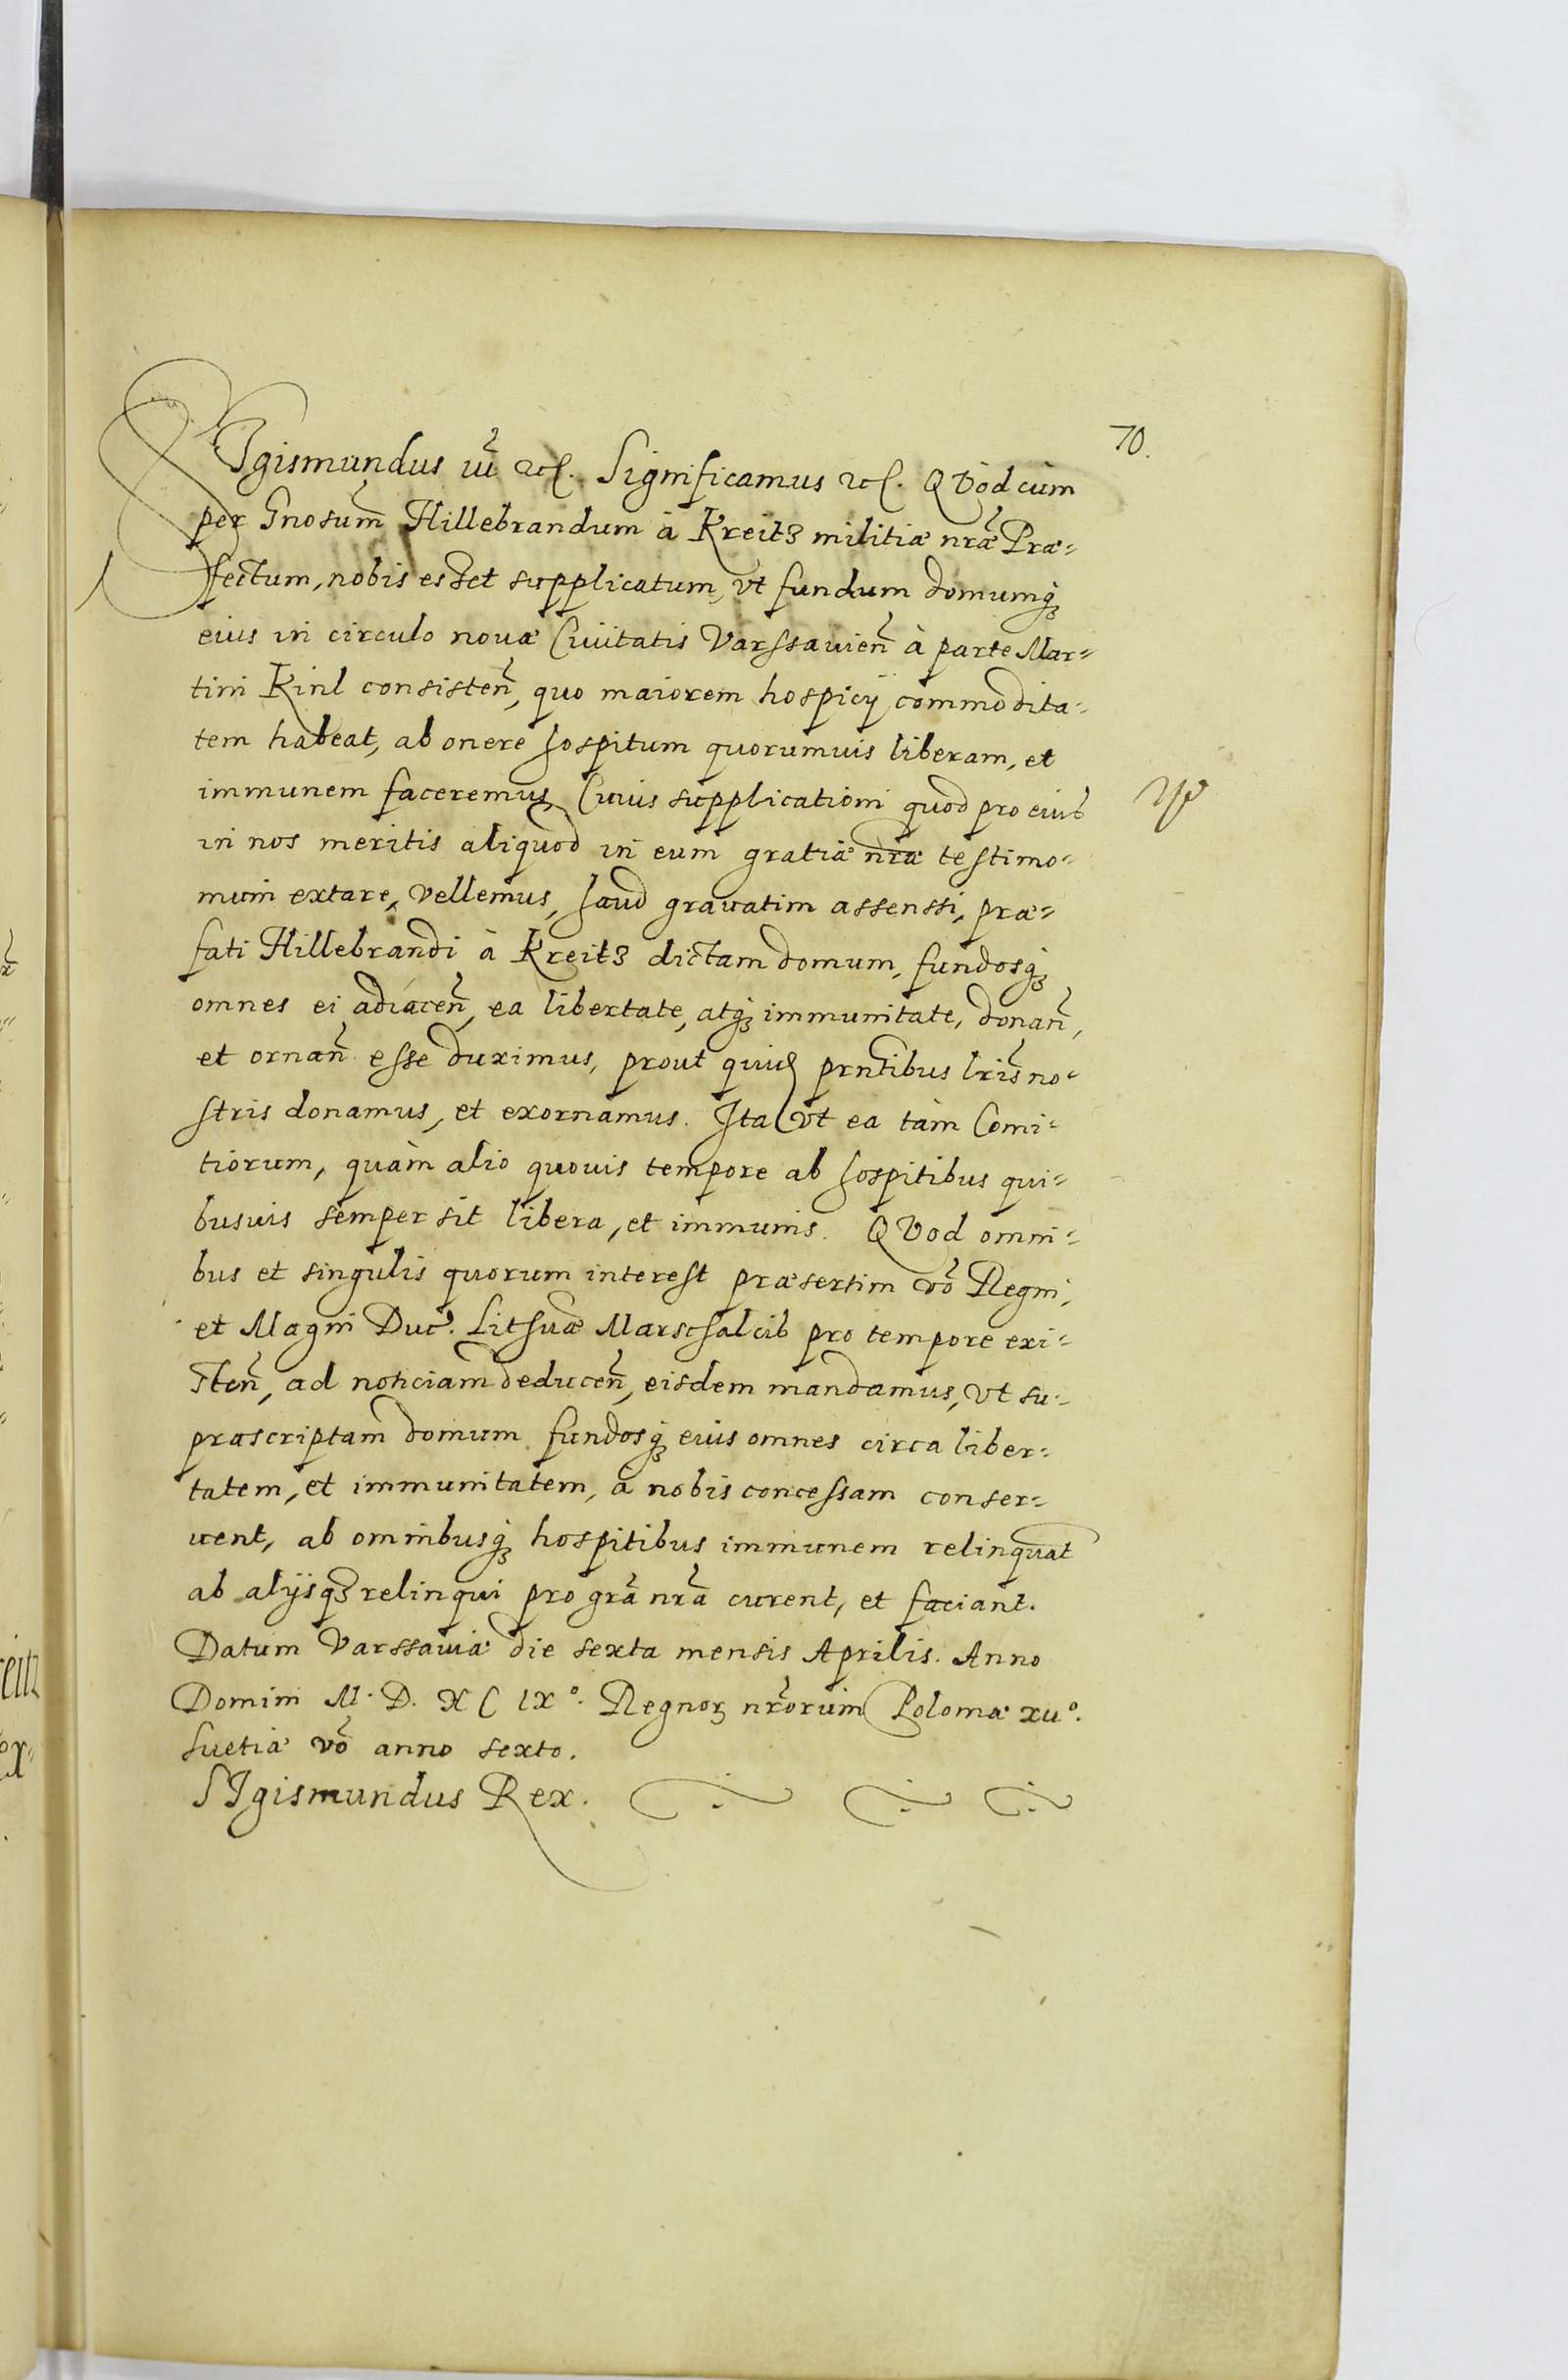 70.
SIgismundus iii etc. Significamus etc. QVod cùm
per Gnosum̃ Hillebrandum à Kreitz militiæ nrã̃e Præ=
fectum, nobis esset supplicatum, vt fundum domumq₃
eius in circulo nouæ Ciuitatis Varssauieñ à parte Mar=
tini Kinl consisteñ, quo maiorem hospicij commodita=
tem habeat, ab onere hospitum quorumuis liberam, et
immunem faceremus, Cuius supplicationi quod pro eius
in nos meritis aliquod in eum gratiæ nr̃æ testimo=
nium extare, vellemus, haud grauatim assenssi, præ=
fati Hillebrandi à Kreitz dictam domum, fundosq₃
omnes ei adiaceñ, ea libertate, atq₃ immunitate, donañ,
et ornañ esse duximus, prout quid prñtibus lrĩs no=
stris donamus, et exornamus. Ita vt ea tàm Comi=
tiorum, quàm alio quouis tempore ab hospitibus qui=
busuis semper sit libera, et immunis. QVod omni=
bus et singulis quorum interest præsertim võ Regni,
et Magni Duc. Lithuæ Marschalcis pro tempore exi=
steñ, ad noticiam deduceñ, eisdem mandamus, vt su=
prascriptam domum fundosq₃ eius omnes circa liber=
tatem, et immunitatem, à nobis concessam conser=
uent, ab omnibusq₃ hospitibus immunem relinquat
ab alijsq₃ relinqui pro grã nr̃a curent, et faciant.
Datum Varssauiæ die sexta mensis Aprilis. Anno
Domini M. D. XC IX°. Regnoꝝ nr̃orum Poloniæ xii°.
Suetiæ võ anno sexto.
SIgismundus Rex.